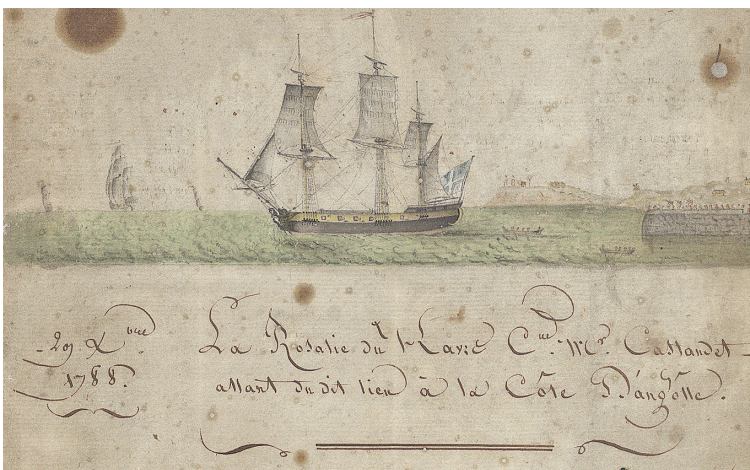 29 Xbre
1788.
La Rosalie du Havre Cne Mr Castandet
allant du dit lieu à la Côte D'angolle.